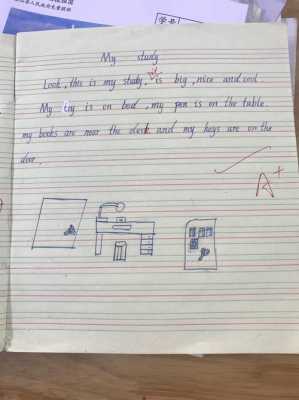 学号
My study
Look, this is my study, it is big, nice and cool.
My toy is on bed, my pen is on the table.
my books are near the desk and my keys are on the
door.
A+